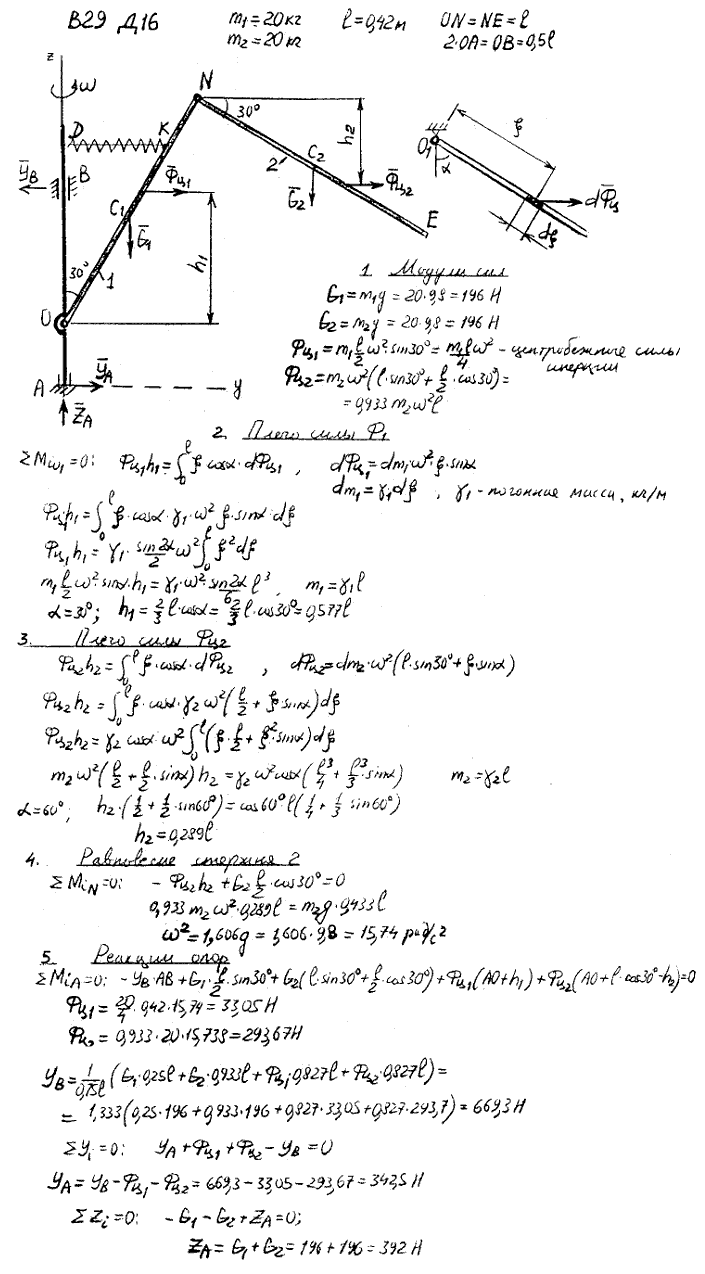 В29 Д16
m₁ = 20 кг l = 0,42 м ON = NE = l
m₂ = 20 кг 2·OA = OB = 0,5l
z
ω
N
30°
D
K
ȳ_B
B
Φ̄ц₁
h₂
C₂
2
Φ̄ц₂
Ḡ₂
E
C₁
Ḡ₁
h₁
30°
1
O
A
ȳ_A
y
Z̄_A
O₁
α
ξ
dΦ̄ц
dξ
1. Модули сил
G₁ = m₁g = 20·9,8 = 196 Н
G₂ = m₂g = 20·9,8 = 196 Н
Φц₁ = m₁ l/2 ω²·sin30° = m₁l/4 ω² - центробежные силы инерции
Φц₂ = m₂ω²(l·sin30° + l/2·cos30°) =
= 0,933 m₂ω²l
2. Плечо силы Φ₁
ΣMω₁ = 0: Φц₁h₁ = ∫₀ˡ ξ cosα·dΦц₁ , dΦц₁ = dm₁ω²·ξ·sinα
dm₁ = γ₁dξ , γ₁ - погонная масса, кг/м
Φц₁h₁ = ∫₀ˡ ξ·cosα·γ₁·ω² ξ·sinα·dξ
Φц₁h₁ = γ₁· sin2α/2 ω² ∫₀ˡ ξ²dξ
m₁ l/2 ω²·sinα·h₁ = γ₁·ω²· sin2α/6 l³ , m₁ = γ₁l
α = 30°; h₁ = 2/3 l·cosα = 2/3 l·cos30° = 0,577l
3. Плечо силы Φц₂
Φц₂h₂ = ∫₀ˡ ξ·cosα·dΦц₂ , dΦц₂ = dm₂·ω²(l·sin30° + ξ·sinα)
Φц₂h₂ = ∫₀ˡ ξ·cosα·γ₂ω²(l/2 + ξ·sinα)dξ
Φц₂h₂ = γ₂ cosα·ω² ∫₀ˡ (ξ·l/2 + ξ²·sinα)dξ
m₂ω²(l/2 + l/2·sinα)h₂ = γ₂ω²cosα(l³/4 + l³/3·sinα) m₂ = γ₂l
α = 60°; h₂·(1/2 + 1/2·sin60°) = cos60° l(1/4 + 1/3 sin60°)
h₂ = 0,289l
4. Равновесие стержня 2
ΣMiN = 0: - Φц₂h₂ + G₂ l/2·cos30° = 0
0,933 m₂ω²·0,289l = m₂g·0,433l
ω² = 1,606g = 1,606·9,8 = 15,74 рад/с²
5. Реакции опор
ΣMiA = 0: -y_B·AB + G₁·l/2·sin30° + G₂(l·sin30° + l/2·cos30°) + Φц₁(AO + h₁) + Φц₂(AO + l·cos30° - h₂) = 0
Φц₁ = 20/4·0,42·15,74 = 33,05 Н
Φц₂ = 0,933·20·15,738 = 293,67 Н
y_B = 1/0,75l (G₁·0,25l + G₂·0,933l + Φц₁·0,827l + Φц₂·0,827l) =
= 1,333(0,25·196 + 0,933·196 + 0,827·33,05 + 0,827·293,7) = 669,3 Н
Σyi = 0: y_A + Φц₁ + Φц₂ - y_B = 0
y_A = y_B - Φц₁ - Φц₂ = 669,3 - 33,05 - 293,67 = 342,5 Н
ΣZi = 0: -G₁ - G₂ + Z_A = 0;
Z_A = G₁ + G₂ = 196 + 196 = 392 Н